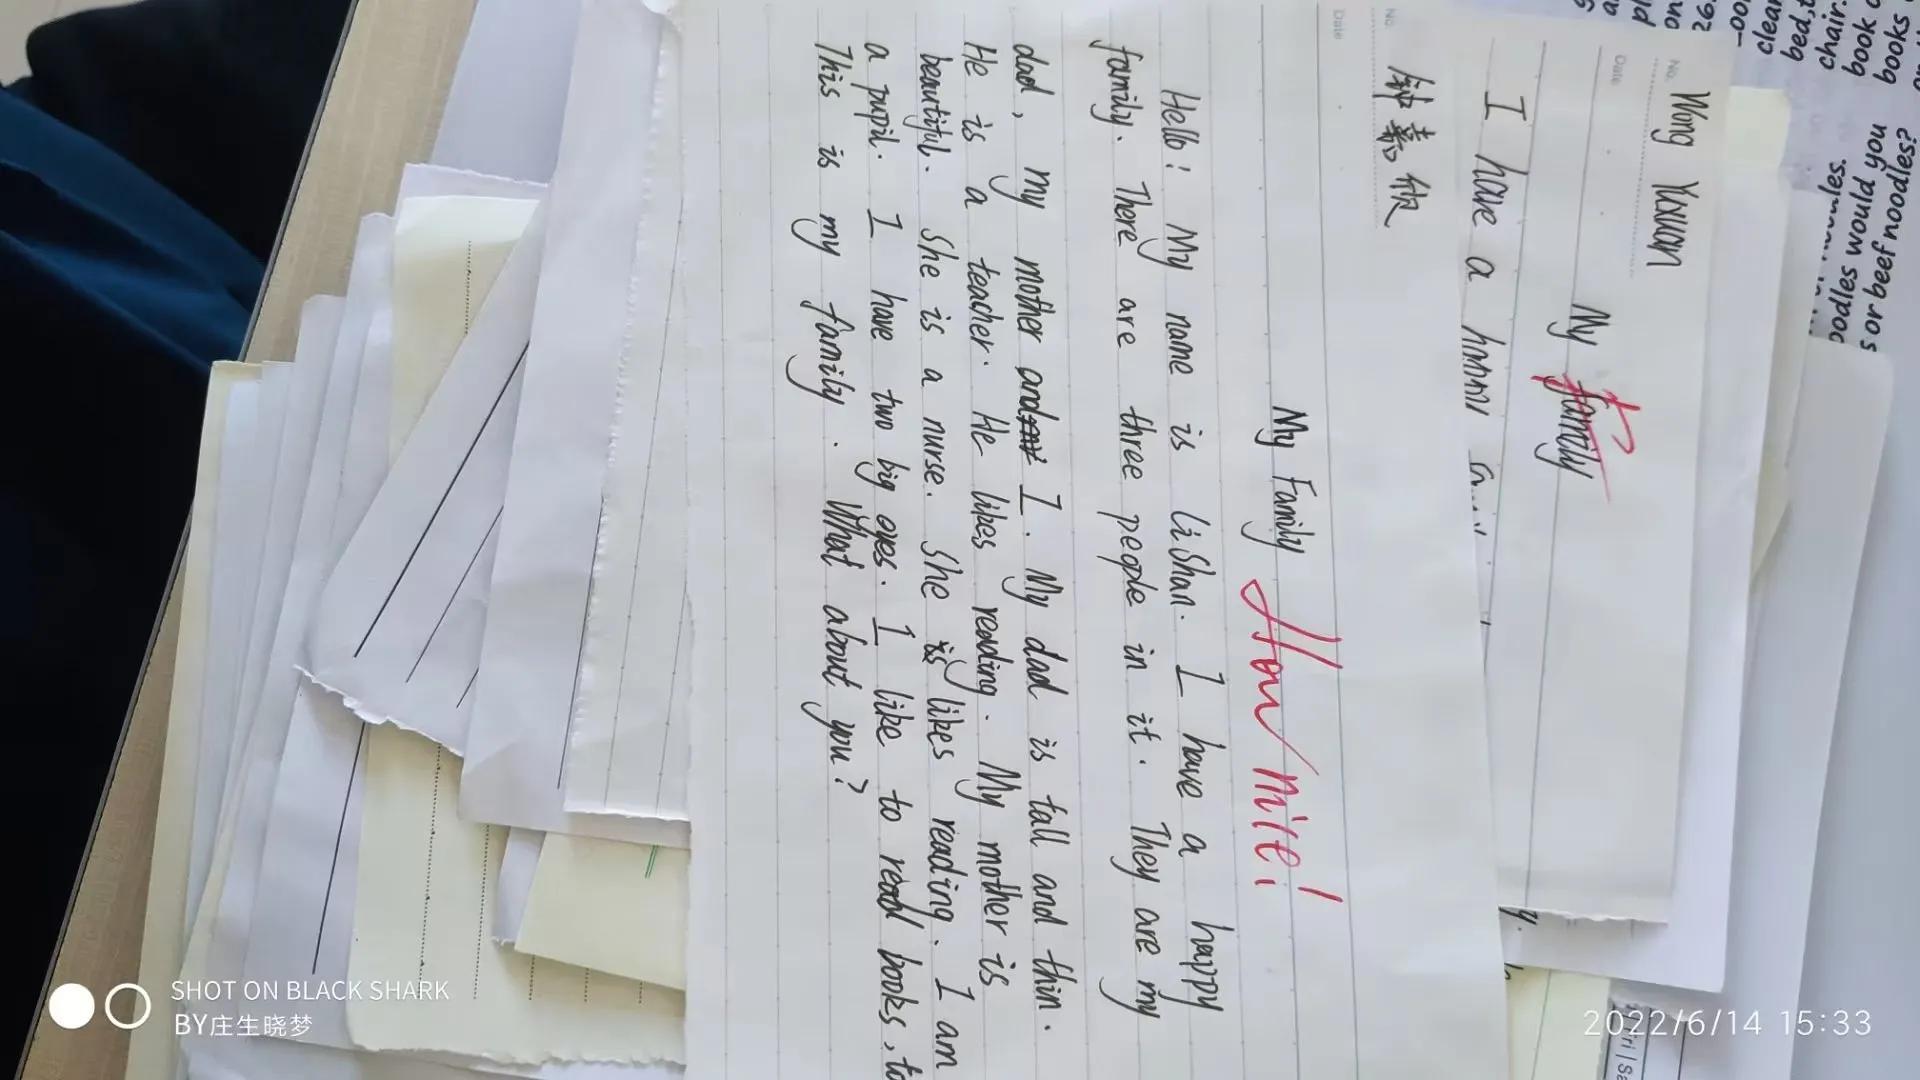 钟嘉欣
No.
Date
My Family
How nice!
Hello! My name is liShan. I have a happy
family. There are three people in it. They are my
dad, my mother and I. My dad is tall and thin.
He is a teacher. He likes reading. My mother is
beautiful. She is a nurse. She is likes reading. I am
a pupil. I have two big eyes. I like to read books, to
This is my family. What about you?
No.
Date
My family
I have a
clean
bed,
chair.
book
books
noodles.
noodles would you
or beef noodles?
SHOT ON BLACK SHARK
BY庄生晓梦
2022/6/14 15:33